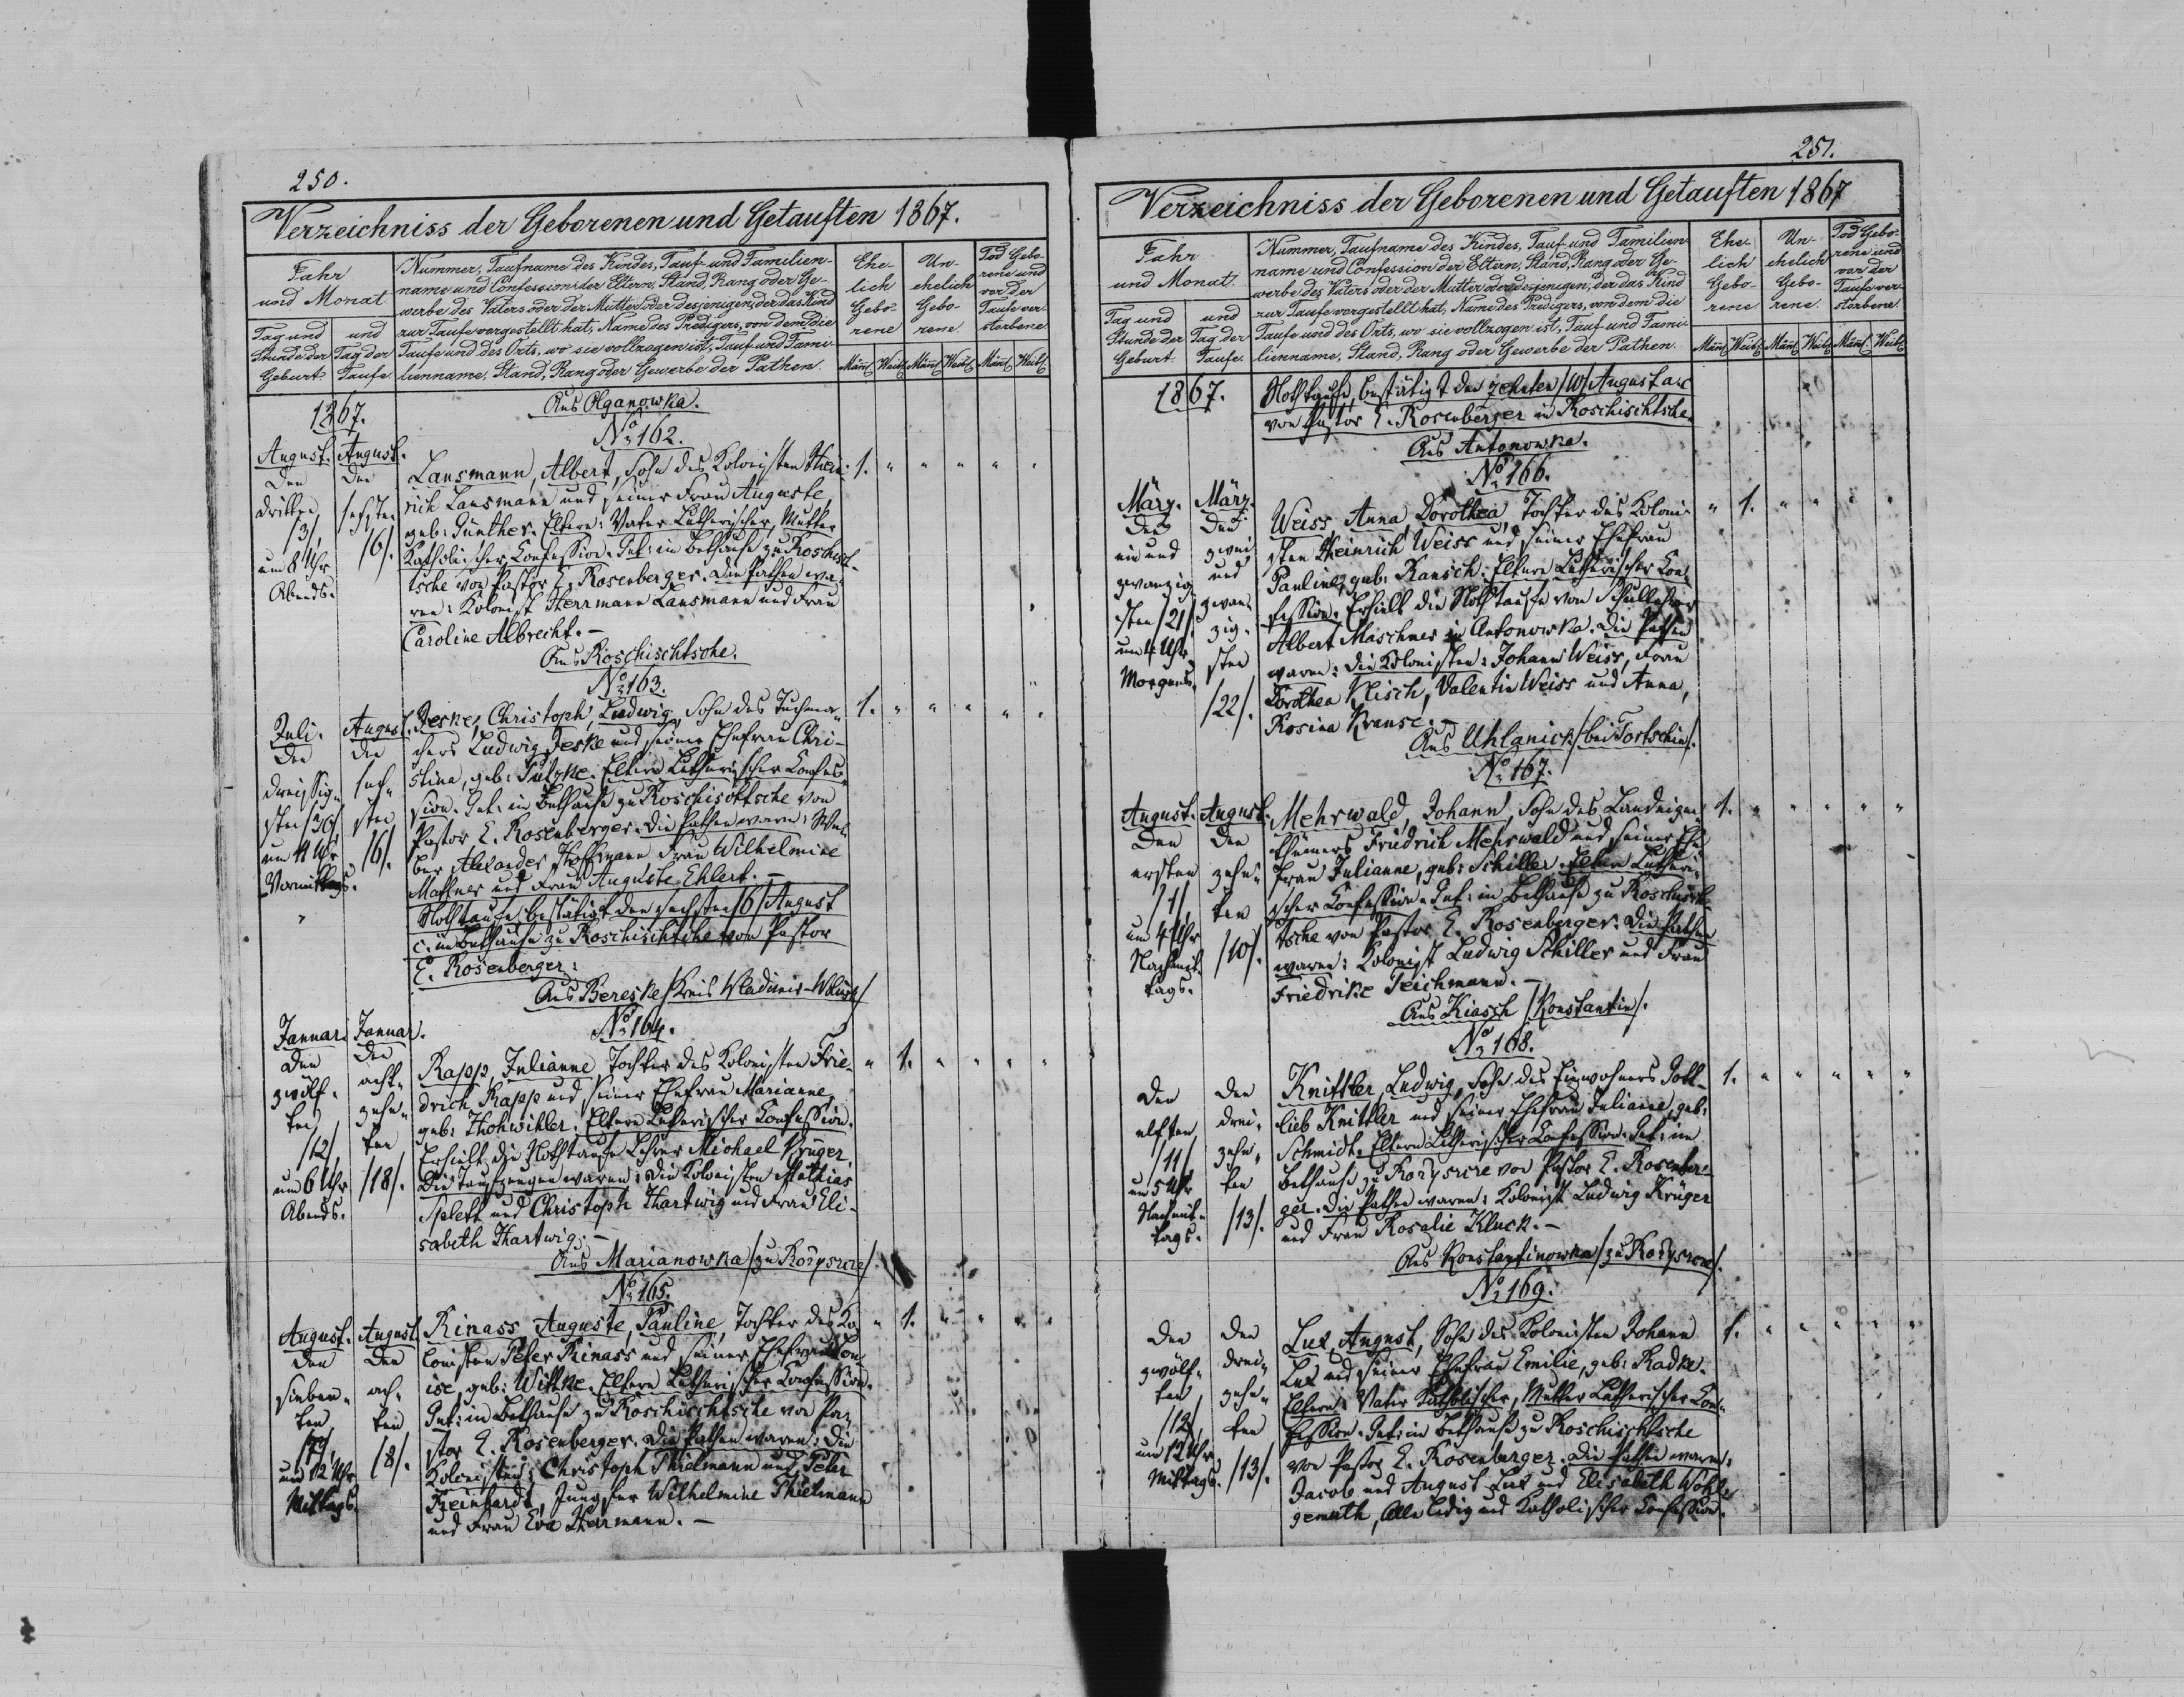 250.
Verzeichniss der Geborenen und Getauften 1867.
Jahr
und Monat
Tag und
Stunde der
Geburt
und
Tag der
Taufe
Nummer, Taufname des Kindes, Tauf- und Familien-
name und Confession der Eltern, Stand, Rang oder Ge-
werbe des Vaters oder der Mutter oder desjenigen, der das Kind
zur Taufe vorgestellt hat, Name des Predigers, von dem die
Taufe und des Orts, wo sie vollzogen ist, Tauf und Fami-
lienname, Stand, Rang oder Gewerbe der Pathen.
Ehe-
lich
Gebo-
rene
Un-
ehelich
Gebo-
rene.
Tod Gebo-
rene und
vor der
Taufe ver-
storbene
Männl Weibl Männl Weibl Männl Weibl
1867.
Aus Olganowka.
No 162.
August. August.
Den
dritten
/3/
um 8 Uhr
Abends.
Den
sechsten
/6/.
Lansmann, Albert, Sohn des Kolonisten Hein- 1. " " " " "
rich Lansmann und seiner Frau Auguste,
geb: Günther. Eltern: Vater Lutherischer, Mutter
Katholischer Konfession. Get: im Bethause zu Roschisch-
tsche von Pastor E. Rosenberger. Die Pathen wa-
ren: Kolonist Herrmann Lansmann und Frau
Caroline Albrecht. —
Aus Roschischtsche.
No 163.
Juli.
Den
dreissig-
sten /30/
um 11 Uhr
Vormittags.
August.
Den
sech-
sten
/6/.
Jeske, Christoph, Ludwig, Sohn des Tuchma- 1. " " " " "
chers Ludwig Jeske und seiner Ehefrau Chri-
stina, geb: Putzke. Eltern Lutherischer Konfes-
sion. Get: im Bethause zu Roschischtsche von
Pastor E. Rosenberger. Die Pathen waren: We-
ber Alexander Hoffmann Frau Wilhelmine
Mattner und Frau Auguste Ehlert. —
Nothtaufe bestätigt den sechsten /6/ August
c. im Bethause zu Roschischtsche von Pastor
E. Rosenberger.
Aus Bereske /Kreis Wladimir-Wolinsk/
No 164.
Januar.
Den
zwölf-
ten
/12/
um 6 Uhr
Abends.
Januar.
Den
acht-
zehn-
ten
/18/.
Rapp, Julianne, Tochter des Kolonisten Frie- " 1. " " " "
drich Rapp und seiner Ehefrau Marianne,
geb: Hohwihler. Eltern Lutherischer Konfession.
Erhielt die Nothtaufe Lehrer Michael Krüger.
Die Taufzeugen waren: die Kolonisten Mathias
Splett und Christoph Hartwig und Frau Eli-
sabeth Hartwig. —
Aus Marianowka /zu Rozyszcze/.
No 165.
August.
Den
sieben-
ten
/7/
um 12 Uhr
Mittags.
August.
Den
ach-
ten
/8/.
Rinass, Auguste, Pauline, Tochter des Ko- " 1. " " " "
lonisten Peter Rinass und seiner Ehefrau Lou-
ise, geb: Wittke. Eltern Lutherischer Konfession.
Get: im Bethause zu Roschischtsche von Pa-
stor E. Rosenberger. Die Pathen waren: Die
Kolonisten: Christoph Thielmann und Peter
Reinhardt, Jungfer Wilhelmine Thielmann
und Frau Eva Herrmann. —
251.
Verzeichniss der Geborenen und Getauften 1867
Jahr
und Monat.
Tag und
Stunde der
Geburt.
und
Tag der
Taufe.
Nummer, Taufname des Kindes, Tauf- und Familien-
name und Confession der Eltern, Stand, Rang oder Ge-
werbe des Vaters oder der Mutter oder desjenigen, der das Kind
zur Taufe vorgestellt hat, Name des Predigers, von dem die
Taufe und des Orts, wo sie vollzogen ist, Tauf- und Fami-
lienname, Stand, Rang oder Gewerbe der Pathen.
Ehe-
lich
Gebo-
rene
Un-
ehelich
Gebo-
rene.
Tod Gebo-
rene und
vor der
Taufe ver-
storbene.
Männl Weibl Männl Weibl Männl. Weibl
1867.
Nothtaufe, bestätigt den zehnten /10/ August a.c
von Pastor E. Rosenberger in Roschischtsche.
Aus Antonowka.
No 166.
März.
Den
ein und
zwanzig
sten /21/
um 4 Uhr
Morgens.
März.
Den
zwei
und
zwan-
zig-
sten
/22/.
Weiss, Anna, Dorothea, Tochter des Koloni- " 1. " " " "
sten Heinrich Weiss und seiner Ehefrau
Pauline, geb: Rausch. Eltern Lutherischer Kon-
fession. Erhielt die Nothtaufe von Schullehrer
Albert Maschner in Antonowka. Die Pathen
waren: die Kolonisten: Johann Weiss, Frau
Dorothea Klisch, Valentin Weiss und Anna,
Rosina Krause. —
Aus Uhlanick /bei Tortschin/.
No 167.
August.
Den
ersten
/1/
um 4 Uhr
Nachmit-
tags.
August.
Den
zehn-
ten
/10/.
Mehrwald, Johann, Sohn des Landeigen- 1. " " " " "
thümers Friedrich Mehrwald und seiner Ehe
frau Julianne, geb: Schiller. Eltern Lutheri-
scher Konfession. Get: im Bethause zu Roschisch-
tsche von Pastor E. Rosenberger. Die Pathen
waren: Kolonist Ludwig Schiller und Frau
Friedrike Teichmann. —
Aus Kiasch /Konstantin/.
No 168.
Den
elften
/11/
um 5 Uhr
Nachmit-
tags.
Den
drei-
zehn-
ten
/13/.
Knittler, Ludwig, Sohn des Einwohners Gott- 1. " " " " "
lieb Knittler und seiner Ehefrau Julianne, geb:
Schmidt. Eltern Lutherischer Konfession. Get: im
Bethause zu Rozyszcze von Pastor E. Rosenber-
ger. Die Pathen waren: Kolonist Ludwig Krüger
und Frau Rosalie Kluck. —
Aus Konstantinowka /zu Rozyszcze/.
No 169.
Den
zwölf-
ten
/12/
um 12 Uhr
Mittags.
Den
drei-
zehn-
ten
/13/.
Lux, August, Sohn des Kolonisten Johann 1. " " " " "
Lux und seiner Ehefrau Emilie, geb: Radke.
Eltern: Vater Katholischer, Mutter Lutherischer Kon-
fession. Get: im Bethause zu Roschischtsche
von Pastor E. Rosenberger. Die Pathen waren:
Jacob und August Lux und Elisabeth Wohl-
gemuth, Alle ledig und Katholischer Konfession.